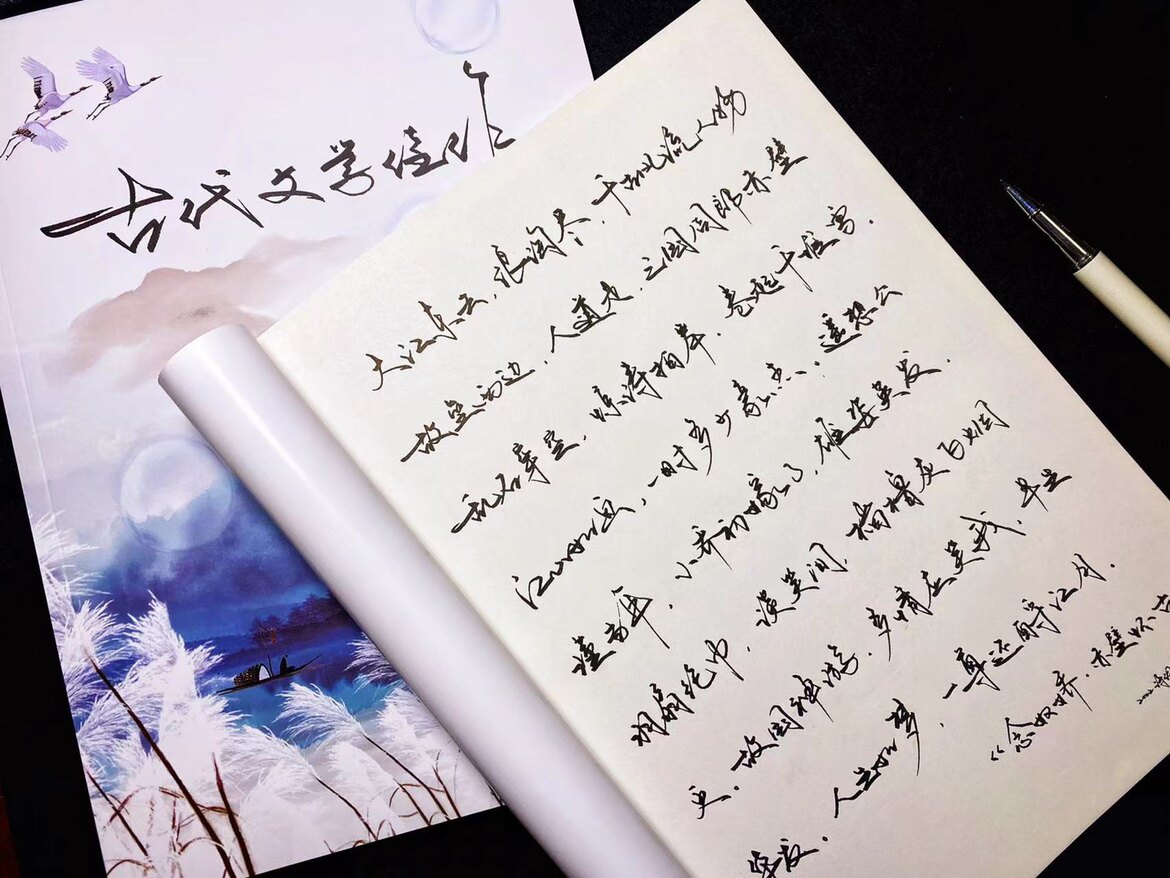 古代文学佳作
大江东去,浪淘尽,千古风流人物
故垒西边,人道是,三国周郎赤壁
乱石穿空,惊涛拍岸,卷起千堆雪.
江山如画,一时多少豪杰,遥想公
谨当年,小乔初嫁了,雄姿英发.
羽扇纶巾,谈笑间,樯橹灰飞烟
灭,故国神游,多情应笑我,早生
华发.人生如梦,一尊还酹江月.
《念奴娇·赤壁怀古